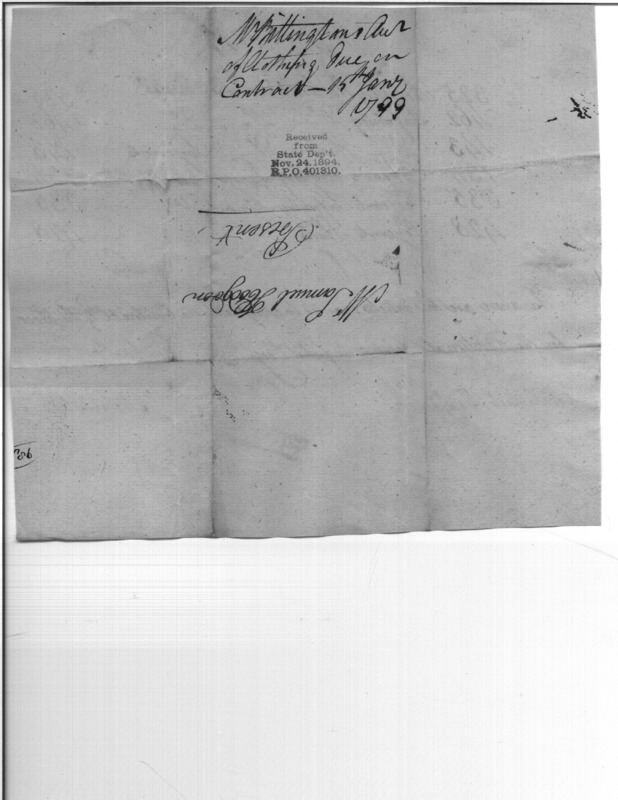 Mr Billington's Acct
of Clothing due on
Contract — 15th Janr
1799
Received
from
State Dep't.
Nov. 24, 1894.
R.P.O. 401310.
Present
Mr Samuel Hodgdon